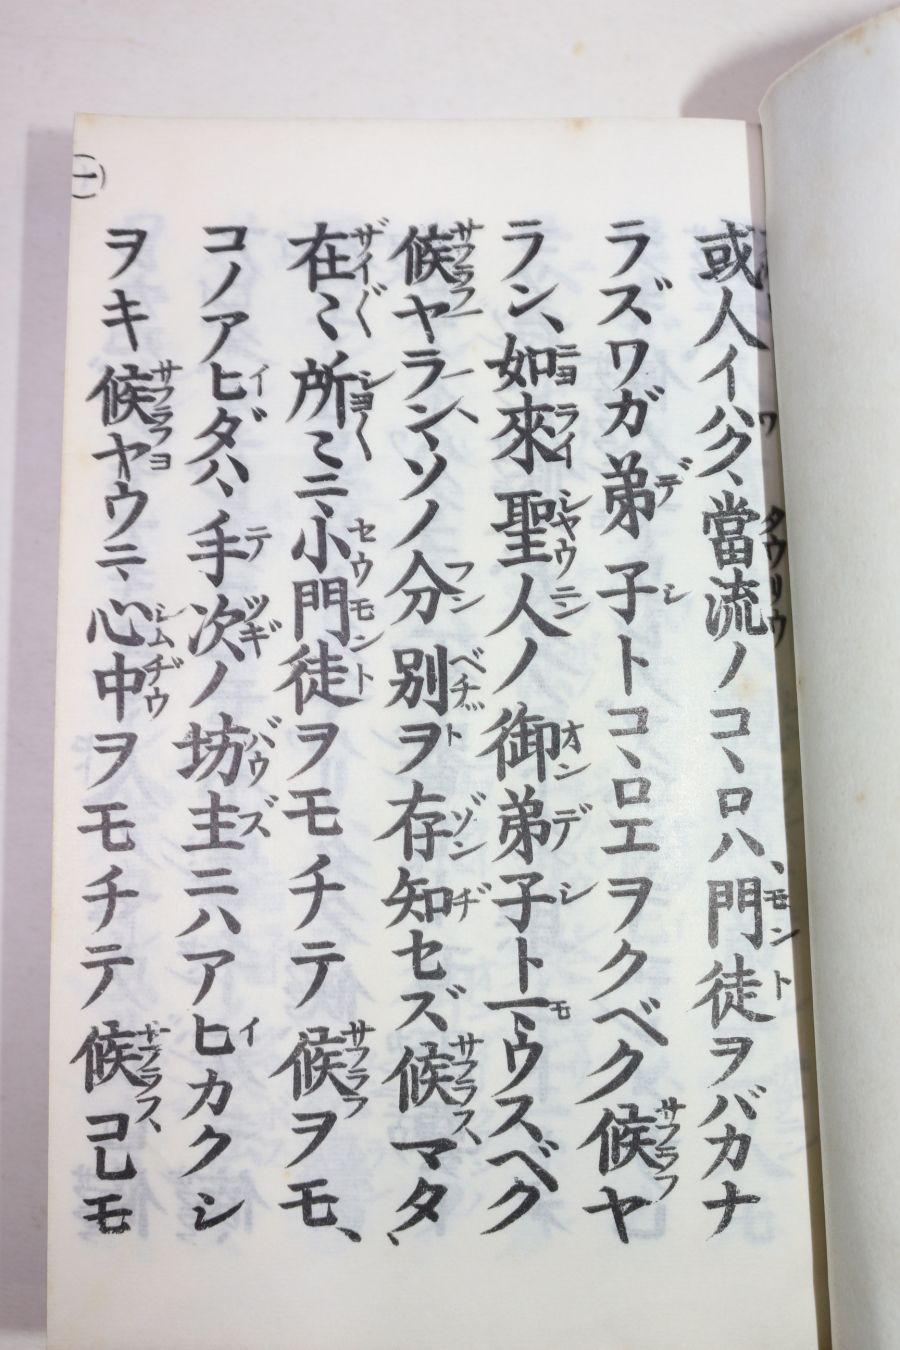 或人イハク、當流ノコヽロハ、門徒ヲバカナ
ラズワガ弟子トコヽロエヲクベク候ヤ
ラン、如來聖人ノ御弟子トマウスベク
候ヤラン、ソノ分別ヲ存知セズ候、マタ、
在〻所〻ニ、小門徒ヲモチテ候ヲモ、
コノアヒダハ、手次ノ坊主ニハアヒカクシ
ヲキ候ヤウニ、心中ヲモチテ候、コレモ
(一)